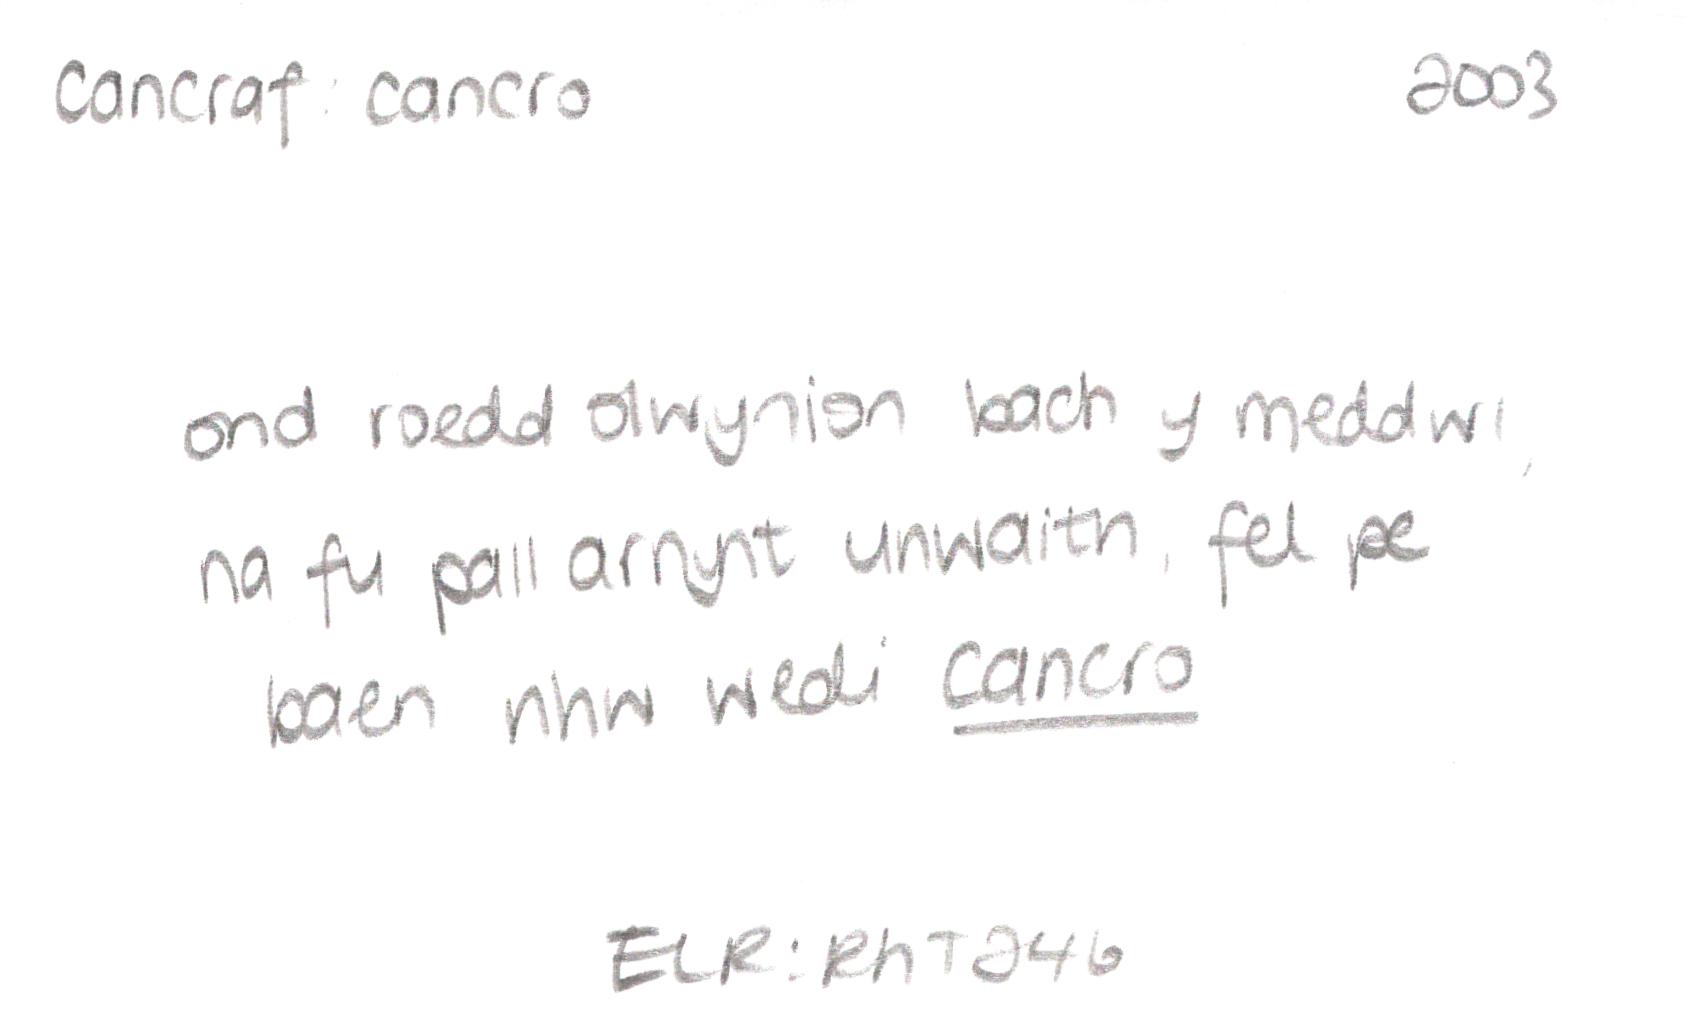 cancraf: cancro 2003
ond roedd olwynion bach y meddwl,
na fu pall arnynt unwaith, fel pe
baen nhw wedi cancro
ELR: RhT 246